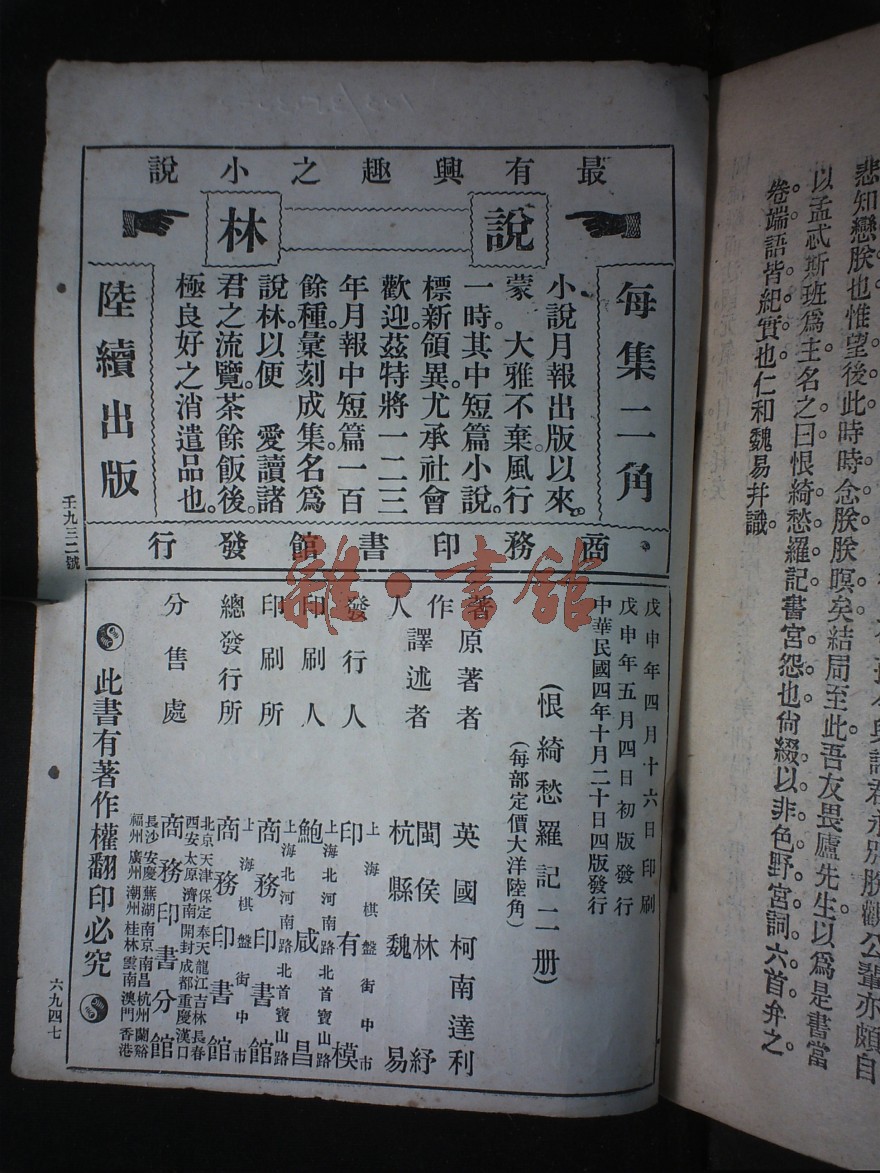 悲知戀朕也惟望後此時時念朕朕暝矣結局至此吾友畏廬先生以爲是書當
以孟忒斯班爲主名之曰恨綺愁羅記書宮怨也尙綴以非色野宮詞六首弁之
卷端語皆紀實也仁和魏易幷識
最有興趣之小說
說林
每集二角
小說月報出版以來
蒙 大雅不棄風行
一時其中短篇小說
標新領異尤承社會
歡迎茲特將一二三
年月報中短篇一百
餘種彙刻成集名爲
說林以便 愛讀諸
君之流覽茶餘飯後
極良好之消遣品也
陸續出版
商務印書館發行
壬九三二號
戊申年四月十六日印刷
戊申年五月四日初版發行
中華民國四年十月二十日四版發行
(恨綺愁羅記二册)
(每部定價大洋陸角)
著作人
原著者 英國柯南達利
譯述者 閩侯林紓
杭縣魏易
發行人 上海棋盤街中市
印有模
印刷人 上海北河南路北首寶山路
鮑咸昌
印刷所 上海北河南路北首寶山路
商務印書館
總發行所 上海棋盤街中市
商務印書館
分售處
北京天津保定奉天龍江吉林長春
西安太原濟南開封成都重慶漢口
商務印書分館
長沙安慶蕪湖南京南昌杭州蘭谿
福州廣州潮州桂林雲南澳門香港
此書有著作權翻印必究
六九四七
雜·書館